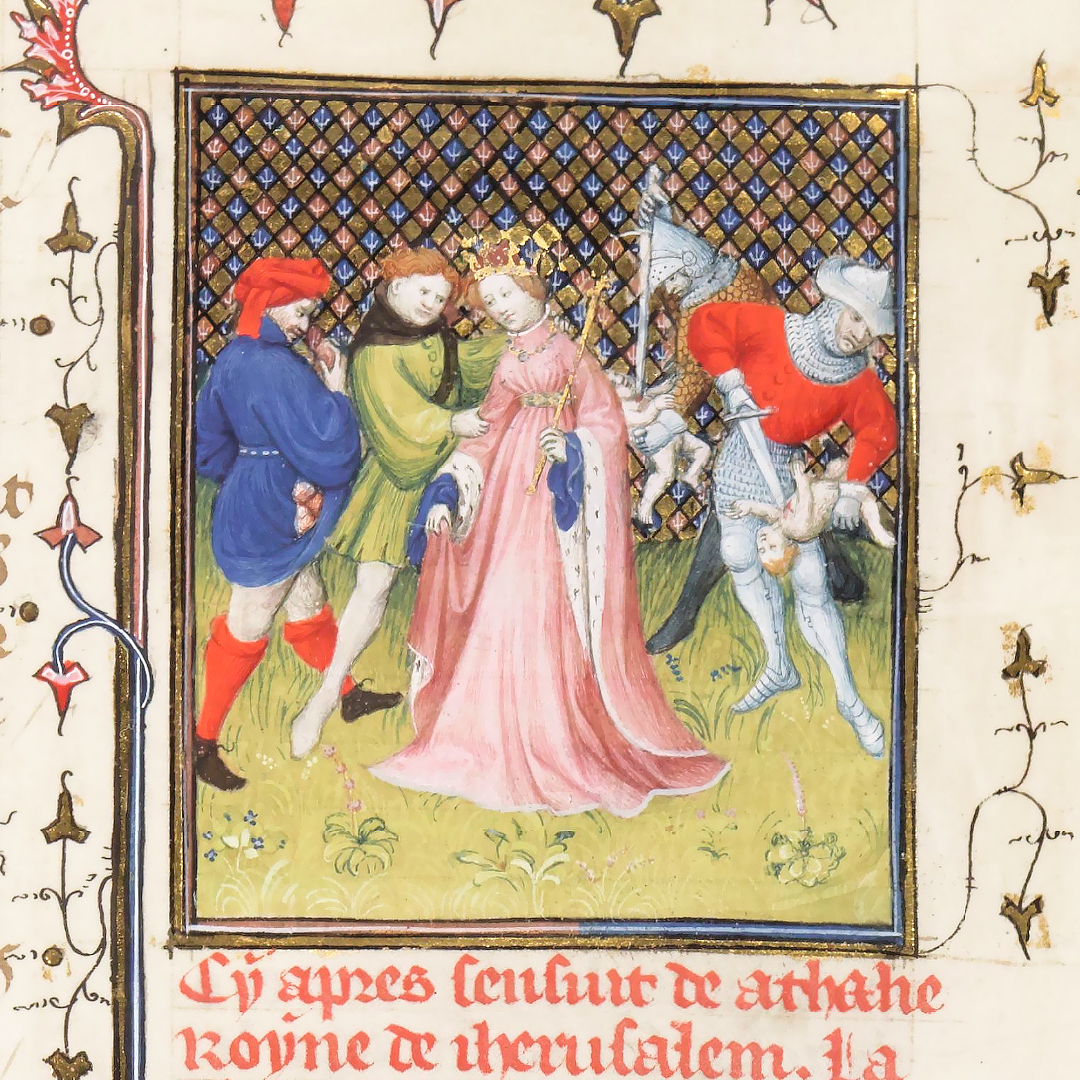 Cÿ apres sensuit de athalie
Royne de iherusalem. La